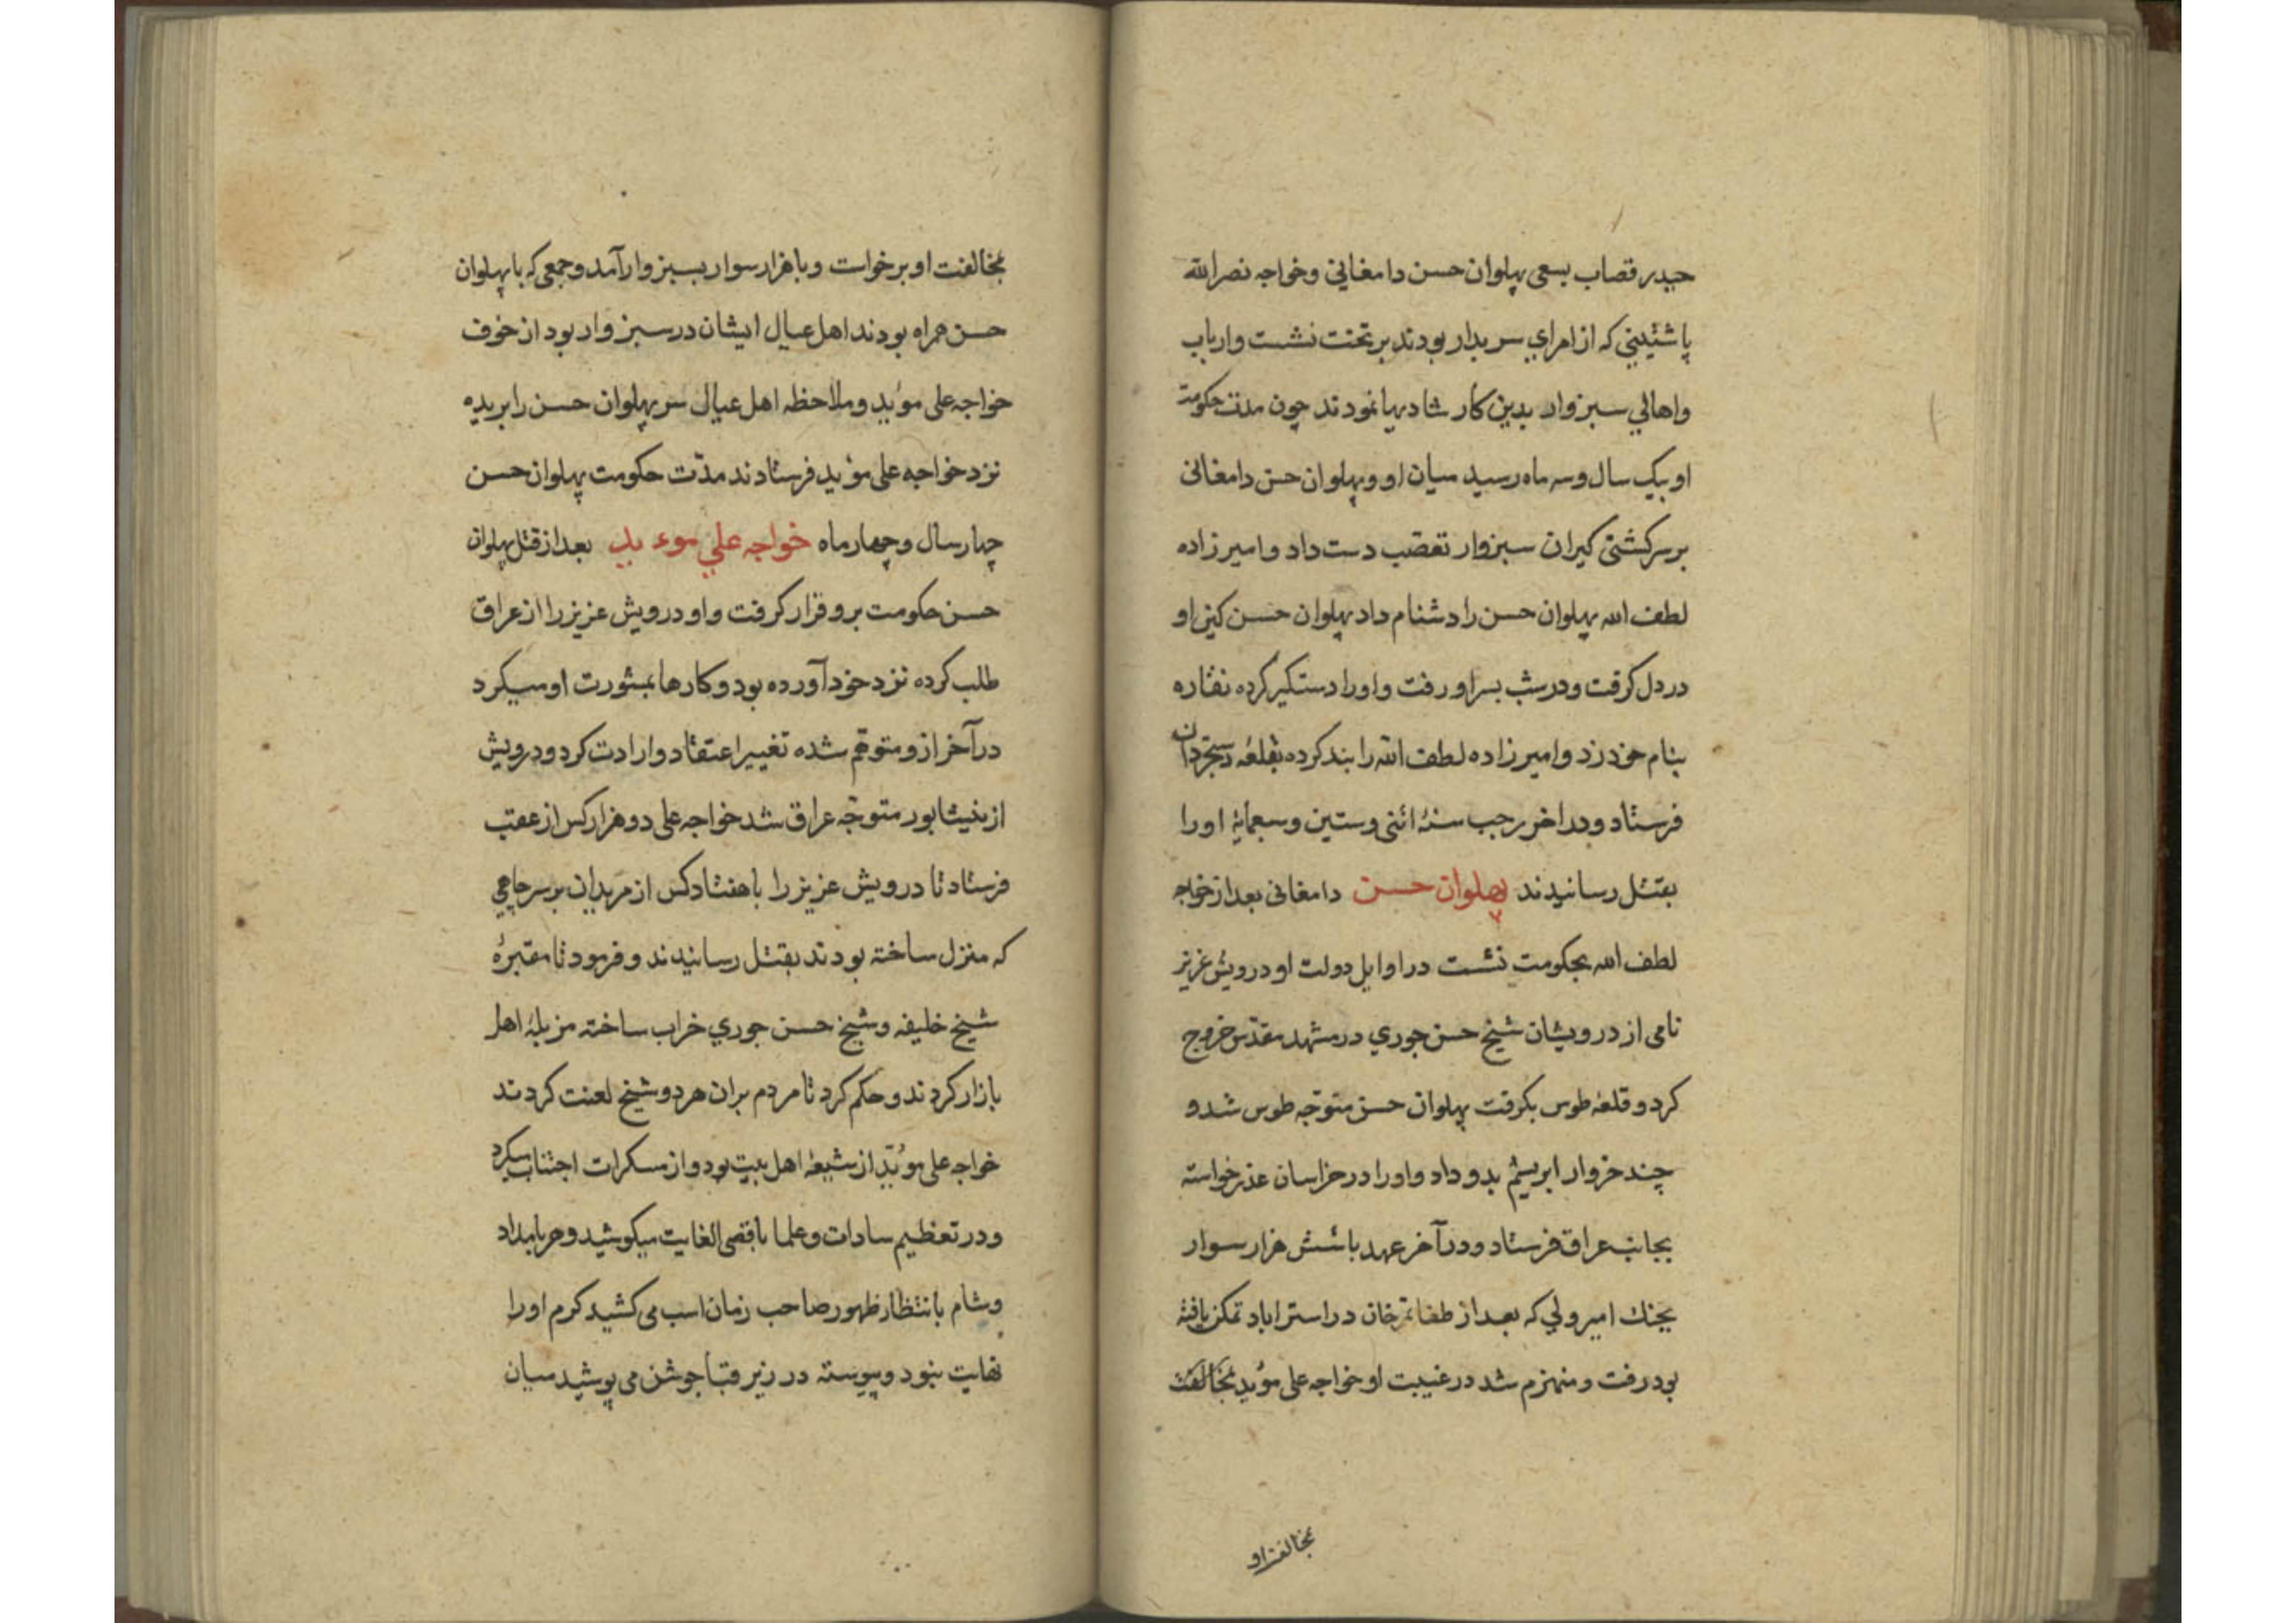 حیدر قصاب بسعی پهلوان حسن دامغانی وخواجه نصرالله
پاشتینی که از امرای سربدار بودند بر تخت نشست وارباب
واهالی سبزوار بدین کار شادیها نمودند چون مدت حکومت
او بیک سال وسه ماه رسید میان او وپهلوان حسن دامغانی
بر سر کشتی کیران سبزوار تعصب دست داد وامیرزاده
لطف الله پهلوان حسن را دشنام داد پهلوان حسن کین او
در دل کرفت ودر شب بسر او رفت واورا دستکیر کرده نقاره
بنام خود زد وامیرزاده لطف الله را بند کرده بقلعهٔ دستجردان
فرستاد ودر اخر رجب سنهٔ اثنی وستین وسبعمایهٔ اورا
بقتل رسانیدند پهلوان حسن دامغانی بعد از خواجه
لطف الله بحکومت نشست در اوایل دولت او درویش عزیز
نامی از درویشان شیخ حسن جوری در مشهد مقدس خروج
کرد و قلعهٔ طوس بکرفت پهلوان حسن متوجّه طوس شد و
چند خروار ابریشم بدو داد واورا در خراسان عذر خواسته
بجانب عراق فرستاد ودر آخر عهد با شش هزار سوار
بجنك امیر ولی که بعد از طغا تمر خان در استراباد تمکن یافته
بود رفت و منهزم شد در غیبت او خواجه علی مؤید بمخالفت
بمخالفت او
بمخالفت او برخواست وبا هزار سوار بسبزوار آمد وجمعی که با پهلوان
حسن همراه بودند اهل عیال ایشان در سبزوار بود از خوف
خواجه علی مؤید وملاحظه اهل عیال سر پهلوان حسن را بریده
نزد خواجه علی مؤید فرستادند مدّت حکومت پهلوان حسن
چهار سال وچهار ماه خواجه علی موء ید بعد از قتل پهلوان
حسن حکومت برو قرار کرفت واو درویش عزیز را از عراق
طلب کرده نزد خود آورده بود وکارها بمشورت او میکرد
در آخر ازو متوهّم شده تغییر اعتقاد وارادت کرد ودرویش
از نیشابور متوجّه عراق شد خواجه علی دو هزار کس از عقب
فرستاد تا درویش عزیز را با هفتاد کس از مریدان بر سر چاهی
که منزل ساخته بودند بقتل رسانیدند وفرمود تا مقبرهٔ
شیخ خلیفه وشیخ حسن جوری خراب ساخته مزبلهٔ اهل
بازار کردند وحکم کرد تا مردم بران هر دو شیخ لعنت کردند
خواجه علی مؤیّد از شیعهٔ اهل بیت بود واز مسکرات اجتناب میکرد
ودر تعظیم سادات وعلما باقصی الغایت میکوشید وهر بامداد
وشام بانتظار ظهور صاحب زمان اسب می کشید کرم اورا
نهایت نبود وپیوسته در زیر قبا جوشن می پوشید میان